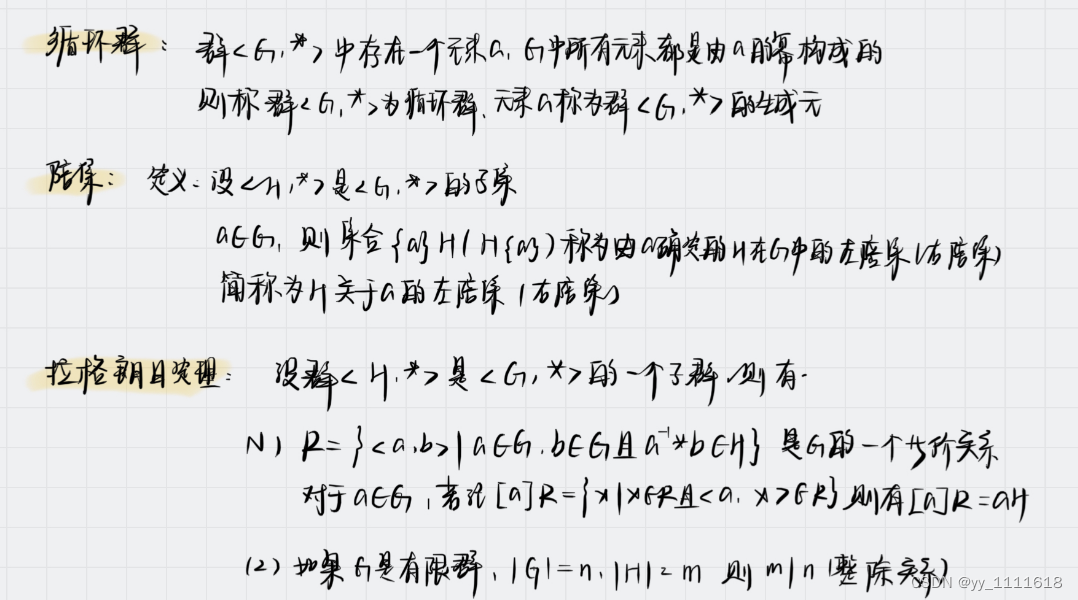 循环群: 群<G,*>中存在一个元素a, G中所有元素都是由a的幂构成的
则称群<G,*>为循环群, 元素a称为群<G,*>的生成元
陪集: 定义: 设<H,*>是<G,*>的子集
a∈G, 则集合{a}H(H{a})称为由a确定的H在G中的左陪集(右陪集)
简称为H关于a的左陪集(右陪集)
拉格朗日定理: 设群<H,*>是<G,*>的一个子群,则有.
(1) R={<a,b>|a∈G,b∈G且a⁻¹*b∈H}是G的一个等价关系
对于a∈G,若记[a]R={x|x∈R且<a,x>∈R}则有[a]R=aH
(2) 如果G是有限群, |G|=n, |H|=m 则 m|n (整除关系)
CSDN @yy_1111618